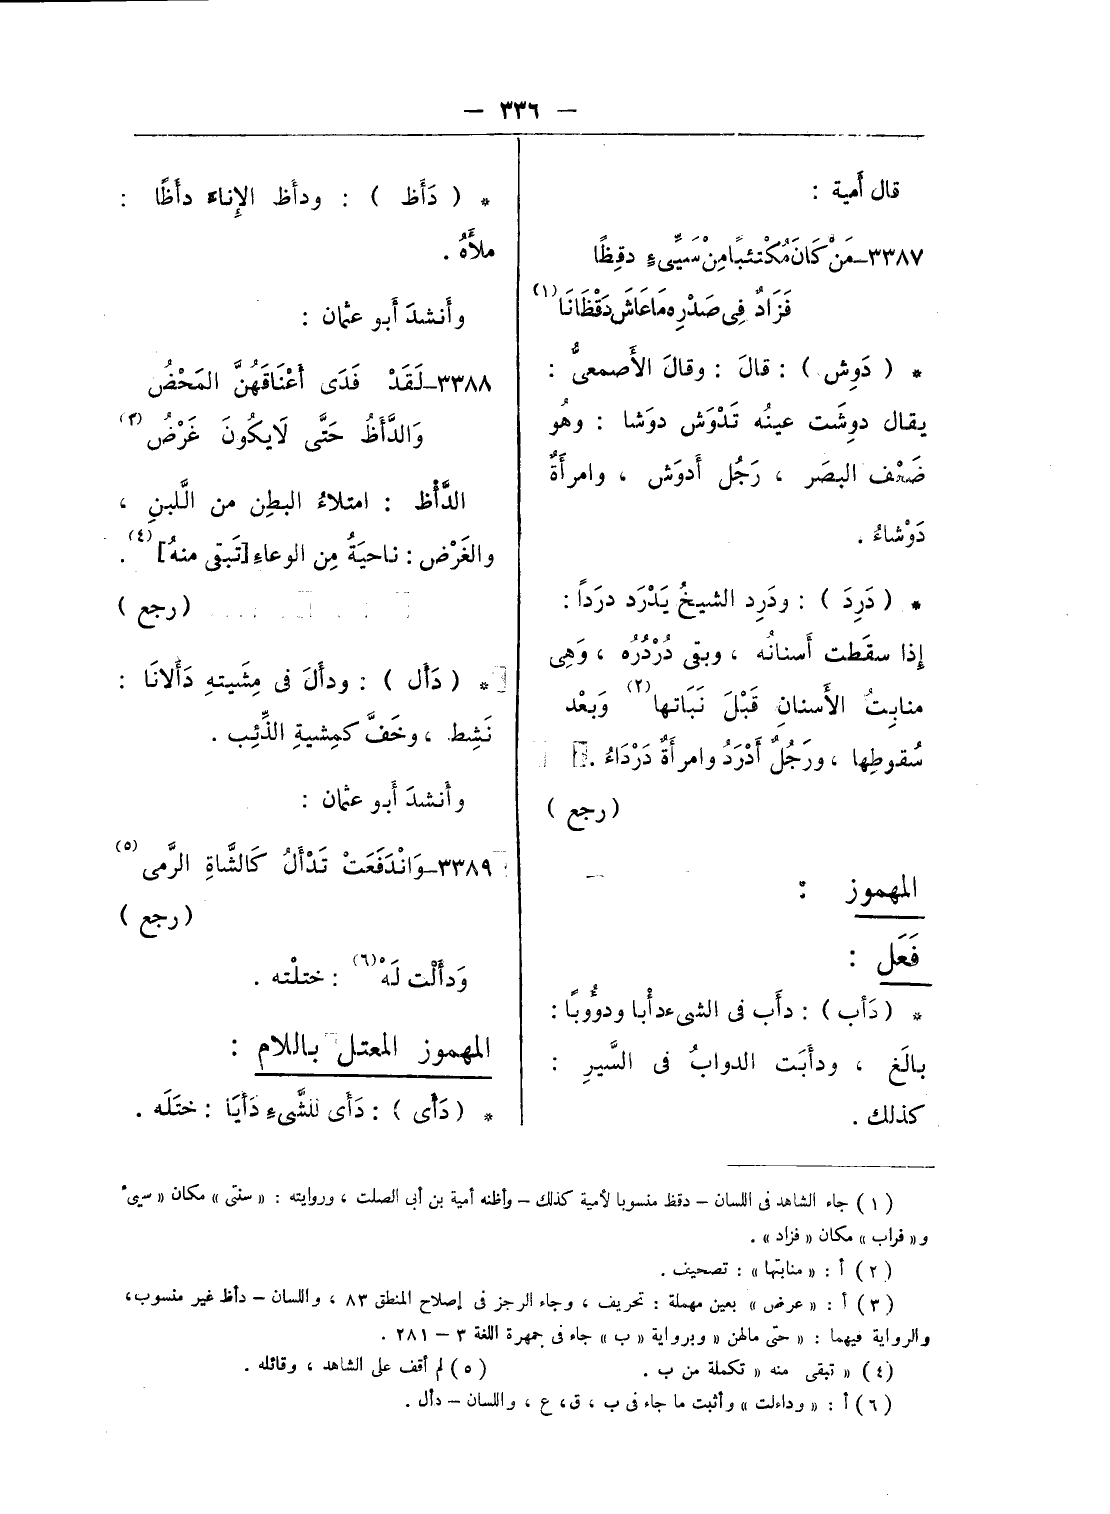 — ٣٣٦ —
قال أَمية :
٣٣٨٧ــ مَنْ كَانَ مُكْتئبًا مِنْ سَيِّىءٍ دقِظًا
فَزَادٌ فِى صَدْرِه مَا عَاشَ دَقْظَانَا (١)
* ( دَوِش ) : قالَ : وقالَ الأَصمعىُّ :
يقال دوِشَت عينُه تَدْوَش دوَشا : وهُو
ضَعْف البصَر ، رَجُل أَدوَش ، وامرأَةٌ
دَوْشاءُ .
* ( دَرِدَ ) : ودَرِد الشيخُ يَدْرَد درَداً :
إذا سقَطت أَسنانُه ، وبقى دُرْدُرُه ، وَهِى
منابِتُ الأَسنانِ قَبْلَ نَبَاتها (٢) وَبَعْد
سُقوطِها ، ورَجُلٌ أَدْرَدُ وامرأَةٌ دَرْدَاءُ .
( رجع )
المهموز :
فَعَل :
* ( دَأب ) : دأَب فى الشىء دأْبا ودوُّوبًا :
بالَغ ، ودأَبَت الدوابُ فى السَّيرِ :
كذلك .
* ( دَأَظ ) : ودأَظ الإِناءَ دأَظًا :
ملأَهُ .
وأَنشدَ أَبو عثمان :
٣٣٨٨ــ لَقَدْ فَدَى أَعْنَاقَهُنَّ المَحْضُ
وَالدَّأَظُ حَتَّى لَايكُونَ غَرْضُ (٣)
الدَّأْظ : امتلاءُ البطنِ من الَّلبنِ ،
والغَرْض : ناحيَةُ مِن الوعاءِ [تَبقى منهُ] (٤) .
( رجع )
* ( دَأَل ) : ودأَلَ فى مِشَيتهِ دَأَلانَا :
نَشِط ، وخَفَّ كمِشيةِ الذِّئِب .
وأَنشدَ أَبو عثمان :
٣٣٨٩ــ وَانْدَفَعَتْ تَدْأَلُ كَالشَّاةِ الرَّمى (٥)
( رجع )
وَدأَلْت لَهْ (٦) : ختلْته .
المهموز المعتل باللام :
* ( دَأى ) : دَأَى للشَّىءِ دَأيَا : ختَلَه .
( ١ ) جاء الشاهد فى اللسان – دقظ منسوبا لأمية كذلك – وأظنه أمية بن أبى الصلت ، وروايته : « سنتى » مكان « سيئ »
و « فراب » مكان « فزاد » .
( ٢ ) أ : « منابتها » : تصحيف .
( ٣ ) أ : « عرض » بعين مهملة : تحريف ، وجاء الرجز فى إصلاح المنطق ٨٣ ، واللسان – دأظ غير منسوب ،
والرواية فيهما : « حتى مالهن » وبرواية « ب » جاء فى جمهرة اللغة ٣ – ٢٨١ .
( ٤ ) « تبقى منه » تكملة من ب . ( ٥ ) لم أقف على الشاهد ، وقائله .
( ٦ ) أ : « وداءلت » وأثبت ما جاء فى ب ، ق ، ع ، واللسان – دأل .